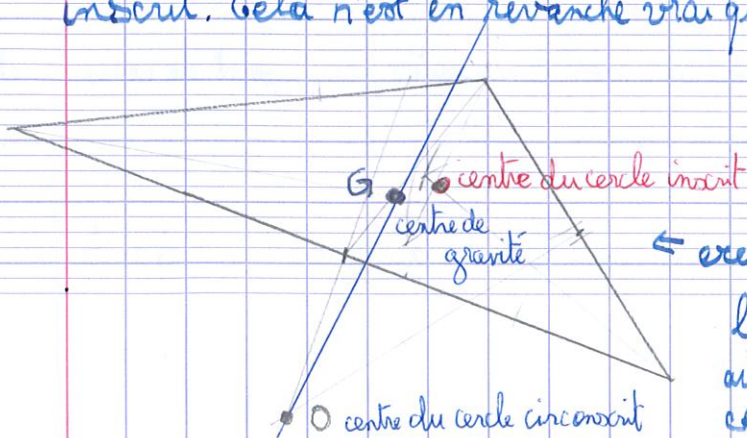 inscrit. Cela n'est en revanche vrai q
G
centre du cercle inscrit
centre de
gravité
← exe
l
au
O centre du cercle circonscrit